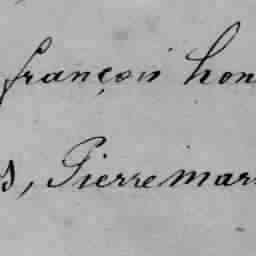 françois hon
s, Pierre mar